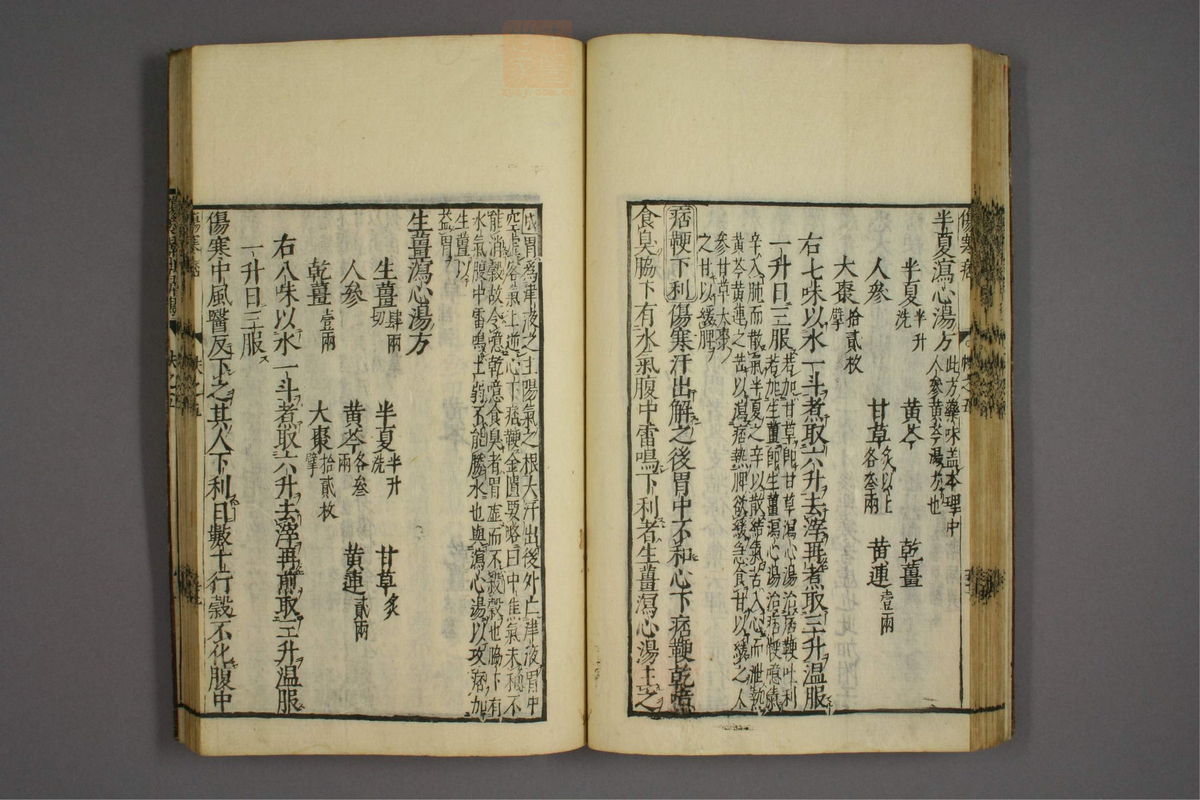 半夏瀉心湯方 此方藥味盖本理中
人參黃芩湯方也
半夏半升洗 黃芩 乾薑
人參 甘草炙以上各叁兩 黃連壹兩
大棗拾貳枚擘
右七味以水一斗煮取六升去滓再煮取三升温服
一升日三服 若加甘草即甘草瀉心湯治痞鞕吐利
若加生薑即生薑瀉心湯治痞鞕噫
辛入肺而散氣半夏之辛以散結氣苦入心而泄熱
黃芩黃連之苦以瀉痞熱脾欲緩急食甘以緩之人
參甘草大棗
之甘以緩脾
痞鞕下利 傷寒汗出解之後胃中不和心下痞鞕乾噫
食臭脇下有水氣腹中雷鳴下利者生薑瀉心湯主之
成胃爲津液之主陽氣之根大汗出後外亡津液胃中
空虛客氣上逆心下痞鞕金匱要略曰中焦氣未和不
能消穀故令噫乾噫食臭者胃虛而不殺穀也脇下有
水氣腹中雷鳴土弱不能勝水也與瀉心湯以攻痞加
生薑以
益胃
生薑瀉心湯方
生薑肆兩切 半夏半升洗 甘草炙
人參 黃芩各叁兩 黃連貳兩
乾薑壹兩 大棗拾貳枚擘
右八味以水一斗煮取六升去滓再煎取三升温服
一升日三服
傷寒中風醫反下之其人下利日數十行穀不化腹中